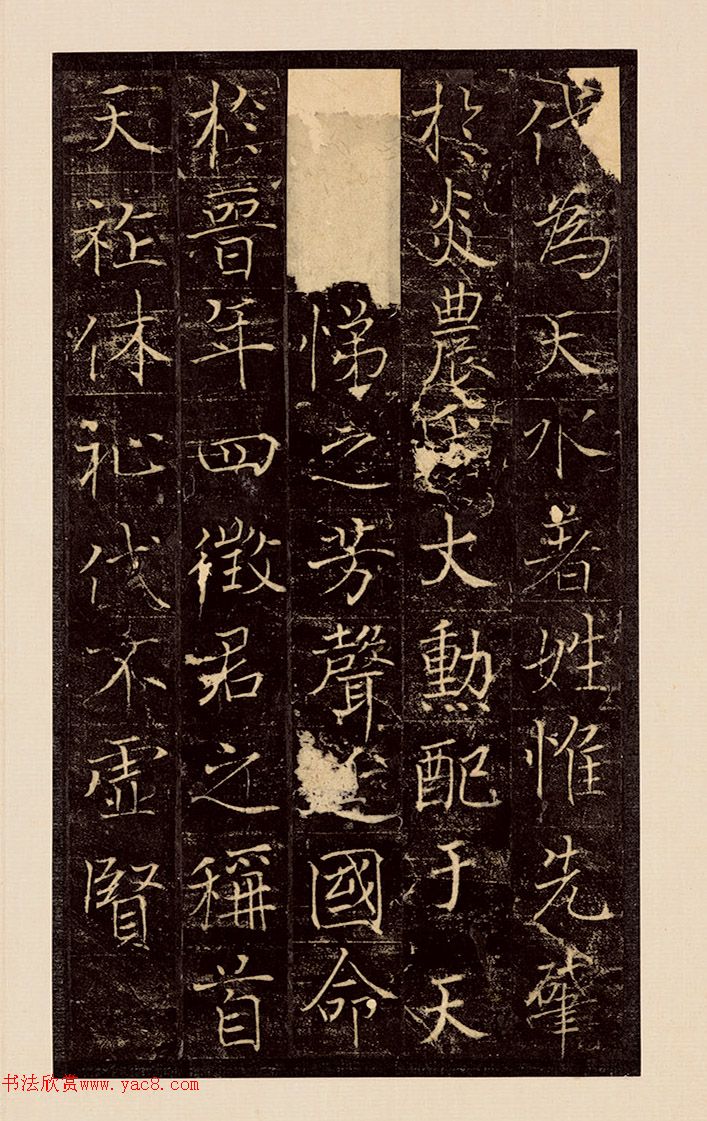 代為天水著姓惟先肇
於炎農氏大勳配于天
悌之芳聲延國命
於晉年四徵君之稱首
天祚休祉代不虛賢
书法欣赏www.yac8.com